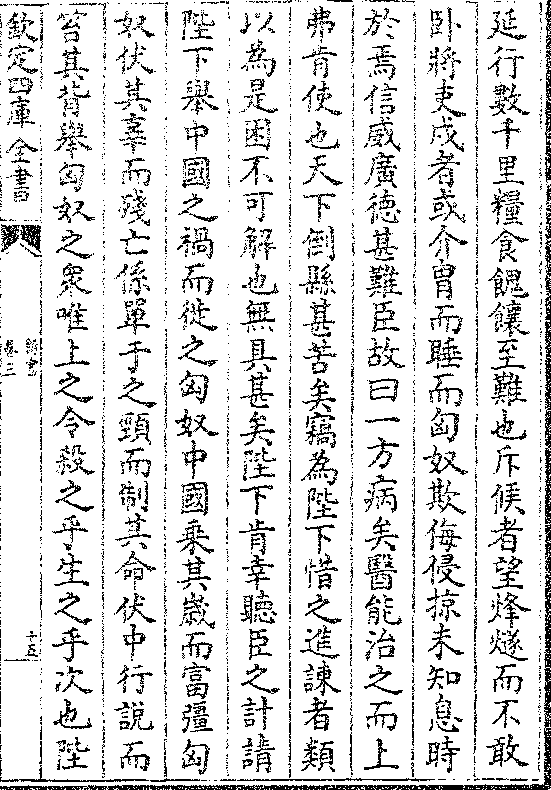 延行數千里糧食餽饟至難也斥候者望烽燧而不敢
卧將吏戍者或介胄而睡而匈奴欺侮侵掠未知息時
於焉信威廣徳甚難臣故曰一方病矣醫能治之而上
弗肯使也天下倒縣甚苦矣竊為陛下惜之進諫者類
以為是困不可解也無具甚矣陛下肯幸聽臣之計請
陛下舉中國之禍而從之匈奴中國乗其歳而富彊匈
奴伏其辜而殘亡係單于之頸而制其命伏中行說而
笞其背舉匈奴之衆唯上之令殺之乎生之乎次也陛
欽定四庫全書
新書
卷三
十五